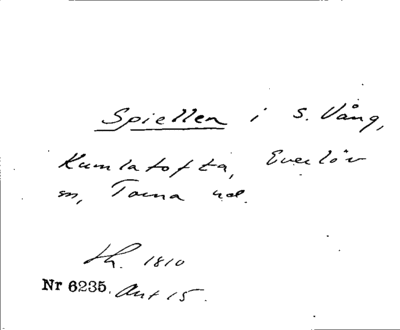 Spiellen i S. Vång,
Kumlatofta, Everlöv
sn, Torna hd.
Lh. 1810
Nr 6235. Akt 15.